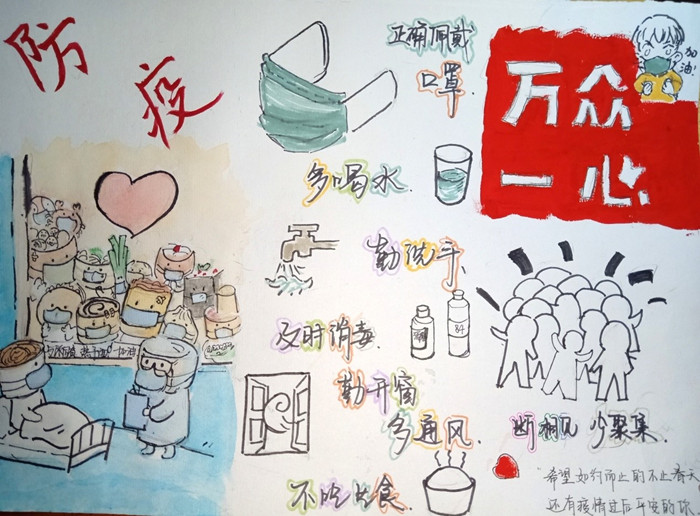 防
疫
正确佩戴
口罩
加
油!
万众
一心
多喝水.
勤洗手.
及时消毒.
84
勤开窗
多通风.
不吃生食.
少聚集.
希望如约而止的不止春天
还有疫情过后平安的你